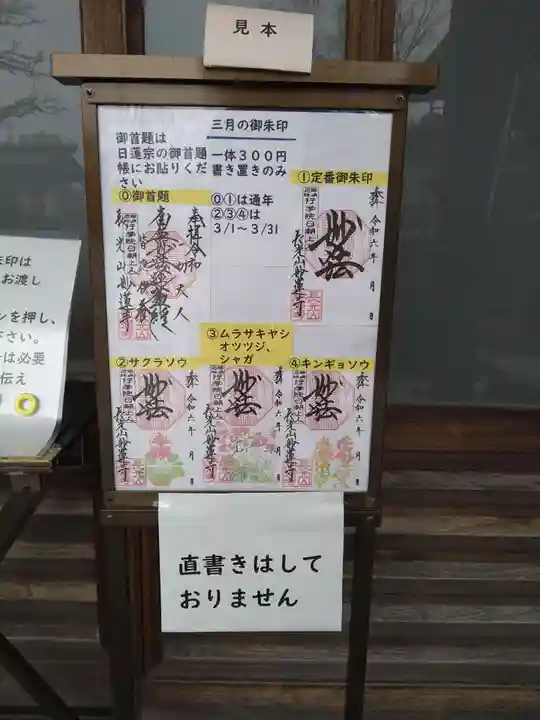 見本
三月の御朱印
御首題は
日蓮宗の御首題
帳にお貼りくだ
さい
一体３００円
書き置きのみ
⓪御首題
⓪①は通年
②③④は
3/1～3/31
①定番御朱印
奉
令和六年 月 日
妙法
②サクラソウ
③ムラサキヤシ
オツツジ、
シャガ
④キンギョソウ
妙法
令和六年 月 日
妙法
令和六年 月 日
妙法
令和六年 月 日
直書きはして
おりません
朱印は
お渡し
ンを押し、
さい。
は必要
伝え